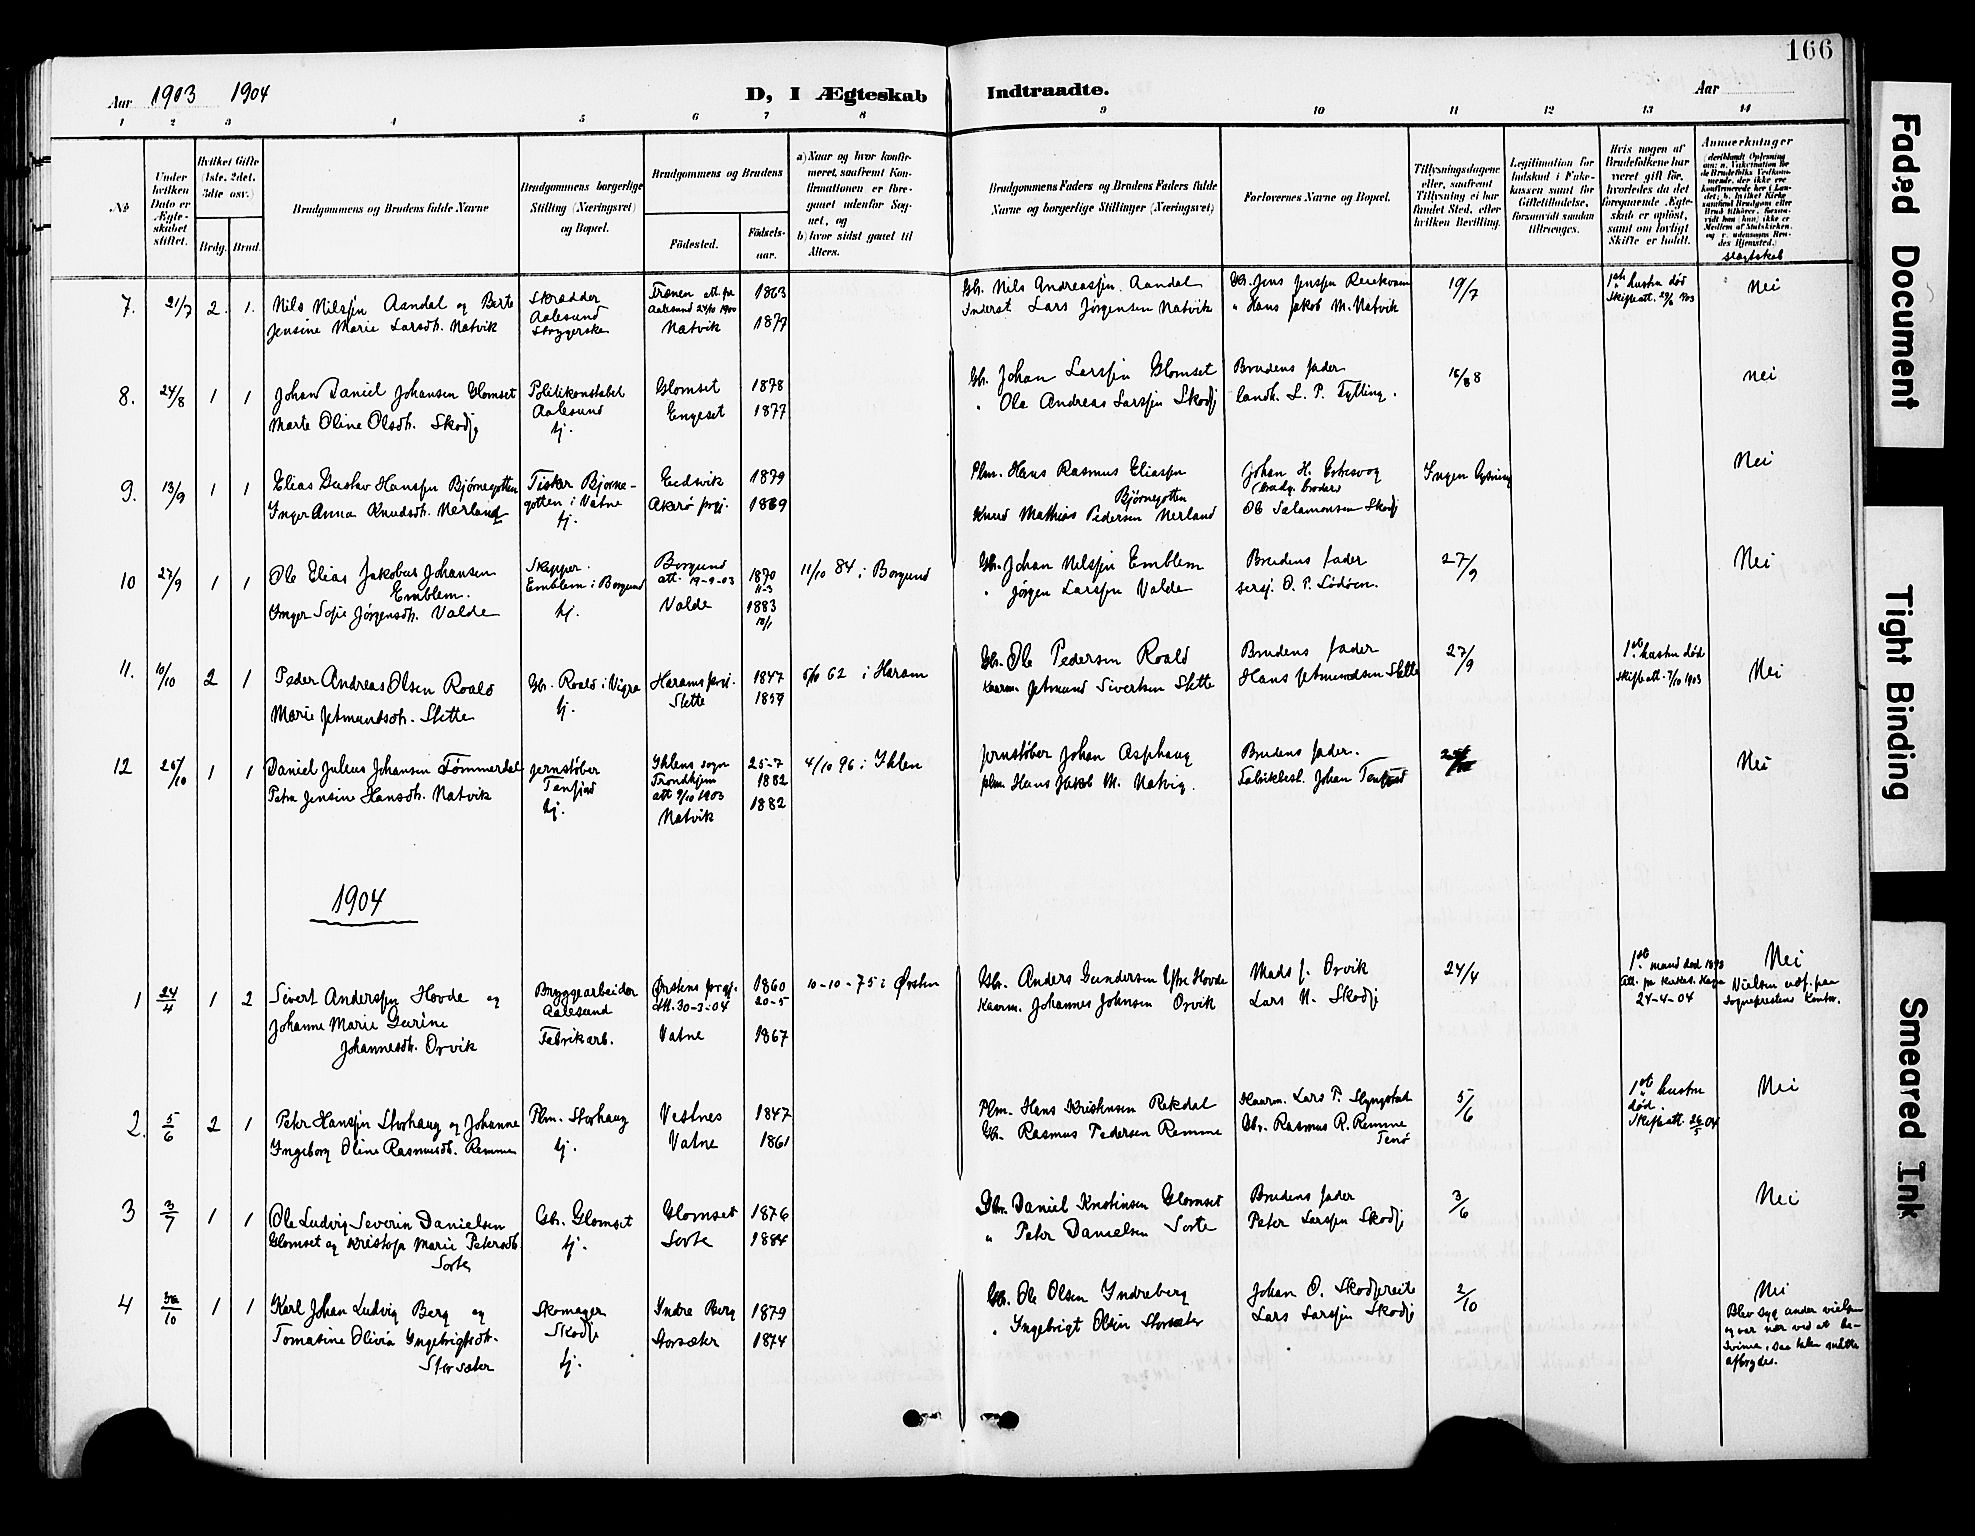 166
Aar 1903 1904
D, I Ægteskab Indtraadte.
Aar
1 2 3 4 5 6 7 8 9 10 11 12 13 14
No
Under hvilken Dato er Ægteskabet stiftet.
Hvilket Gifte (1ste, 2det, 3die osv.)
Brdg. Brud.
Brudgommens og Brudens fulde Navne
Brudgommens borgerlige Stilling (Næringsvei) og Bopæl.
Brudgommens og Brudens
Födested.
Födsels-aar.
a) Naar og hvor konfirmeret, saafremt Konfirmationen er foregaaet udenfor Sognet, og
b) hvor sidst gaaet til Alters.
Brudgommens Faders og Brudens Faders fulde Navne og borgerlige Stillinger (Næringsvei)
Forlovernes Navne og Bopæl.
Tillysningsdagene eller, saafremt Tillysning ei har fundet Sted, efter hvilken Bevilling.
Legitimation for Indskud i Enkekassen samt for Giftetilladelse, forsaavidt saadan tiltrænges.
Hvis nogen af Brudefolkene har været gift før, hvorledes da det foregaaende Ægteskab er opløst, samt om lovligt Skifte er holdt.
Anmærkninger
slægtskab
7. 21/7 2. 1. Nils Nilssøn Aandal og Berte
Jensine Marie Larsdt. Natvik
Skrædder
Aalesund
Strygerske
Aalesund 24/10 1900
Natvik
1863
1877
Gbr. Nils Andreassøn Aandal
Inderst Lars Jørgensen Natvik
Gbr. Jens Jenssøn
" Hans Jakob M. Natvik
19/7
1ste hustru død
Skifteatt.
nei
8. 24/8 1 1 Johan Daniel Johansen Glomset
Marte Oline Olsdt. Skodje
Politikonstabel
Aalesund
hj.
Glomset
Engeset
1878
1877
Gbr. Johan Larssøn Glomset
" Ole Andreas Larssøn Skodje
Brudens fader
landh. L. P. Tylling.
nei
9. 13/9 1 1 Elias Gustav Hanssøn Bjørnegotten
Inger Anna Knudsdt. Nerland
Fisker Bjørne-
gotten i Vatne
hj.
Eidsvik
Akerø prgj.
1879
1869
Plm. Hans Rasmus Eliassøn
Bjørnegotten
Knud Mathias Pedersen Nerland
Johan H.
Ole Salamonsen Skodje
Ingen lysning
Nei
10 27/9 1 1 Ole Elias Jakobus Johansen
Emblem.
Inger Sofie Jørgensdt. Valde
Skipper.
Emblem i Borgund
hj.
Borgund
att. 19-9-03
Valde
1870
11-3
1883
11/10 84 i Borgund
Gbr. Johan Nilssøn Emblem
" Jørgen Larssøn Valde
Brudens fader
sersj. O. P. Lødøen.
27/9
Nei
11. 10/10 2 1 Peder Andreas Olsen Roald
Marie Jetmundsdt. Slette
Gbr. Roald i Vigra
hj.
Harams prgj.
Slette
1847
1859
5/10 62 i Haram
Gbr. Ole Pedersen Roald
Kaarm. Jetmund Sivertsen Slette
Brudens fader
Hans Jetmundsen Slette
27/9
1ste hustru død
Skifteatt. 7/10 1903
Nei
12 25/10 1 1 Daniel Julius Johansen Tømmerdal
Petra Jensine Hansdt. Natvik
Jernstøber
Tenfjord
hj.
Ihlens sogn
Trondhjem
att 9/10 1903
Natvik
25-7
1882
1882
4/10 96 i Ihlen
Jernstøber Johan Asphaug
plm. Hans Jakob M. Natvig.
Brudens fader.
Fabrikbest. Johan Tenfjord
Nei
1904
1 24/4 1 2 Sivert Anderssøn Hovde og
Johanne Marie Gurine
Johannesdt. Orvik
Bryggearbeider
Aalesund
Fabrikarb.
Ørstens prgj.
Att. 30-3-04
Vatne
1860
20-5
1867
10-10-75 i Ørsten
Gbr. Anders Gundersen Ytre Hovde
Kaarm. Johannes Johnsen Orvik
Mads J. Orvik
Lars N. Skodje
24/4
1ste mand død 1898
24-4-04
Nei
Vielsen udf. paa
Sogneprestens Kontor.
2. 5/6 2 1 Peter Hanssøn Storhaug og Johanne
Ingeborg Oline Rasmusdt. Remme
Plm. Storhaug
hj.
Vestnes
Vatne
1847
1861
Plm. Hans Kristensen Rekdal
Gbr. Rasmus Pedersen Remme
Kaarm. Lars P. Slyngstad
Gbr. Rasmus R. Remme
5/6
1ste hustru
død.
Skifteatt. 26/5 04
Nei
3 3/7 1 1 Ole Ludvig Severin Danielsen
Glomset og Kristofa Marie Petersdt.
Sorte
Gbr. Glomset
hj.
Glomset
Sorte
1876
1884
Gbr. Daniel Knutinsen Glomset
" Peter Danielsen Sorte
Brudens fader
Peter Larssøn Skodje
3/6
Nei
4 30/10 1 1 Karl Johan Ludvig Berg og
Tomasine Olivia Ingebrigtsdt.
Storsæter
Skomager
Skodje
hj.
Indre Berg
Storsæter
1879
1874
Gbr. Ole Olsen Indreberg
" Ingebrigt Olsen Storsæter
Johan O. Skodjereite
Lars Larssøn Skodje
2/10
Nei
Blev syg under vielsen
og var nær ved at be-
svime, saa talen maatte
afbrydes.
Faded Document
Tight Binding
Smeared Ink